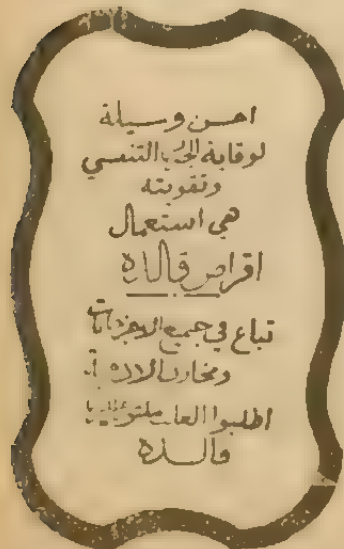 احسن وسيلة
لوقاية الجهاز التنفسي
وتقويته
هي استعمال
اقراص ڤالدة
تباع في جميع الاجزاخانات
ومخازن الادوية
اطلبوا العلب مكتوب عليها
ڤالدة